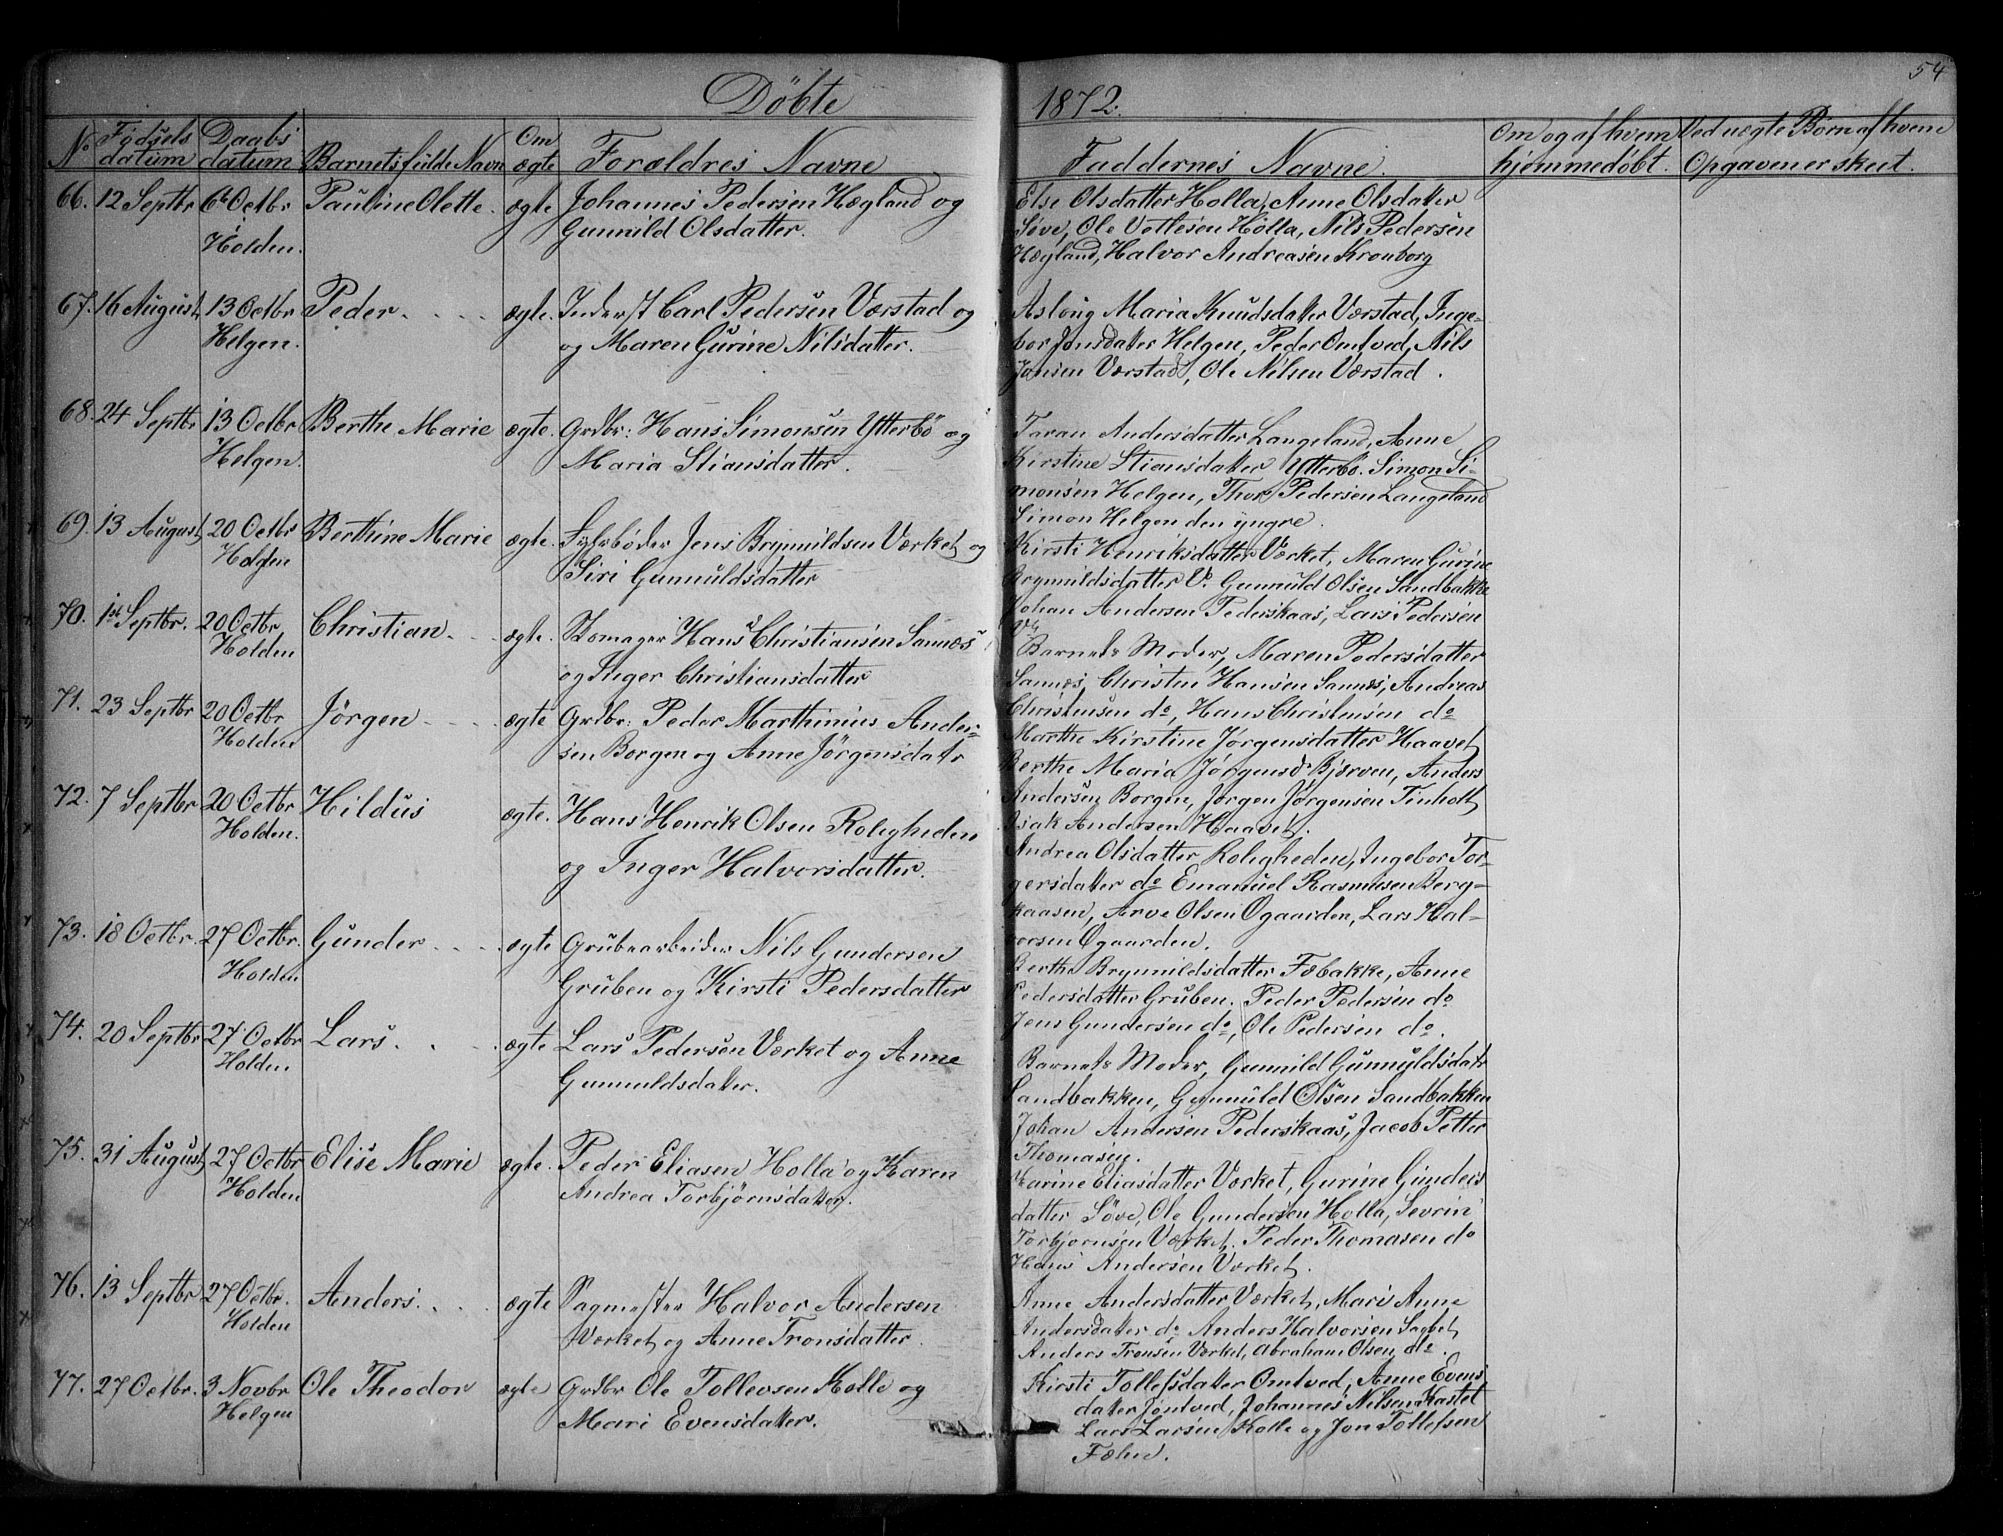 Döbte
1872.
54
No Fødsels datum
Daabs datum
Barnets fulde Navn
Om ægte
Forældres Navne
Faddernes Navne.
Om og af hvem hjemmedøbt.
Ved uægte Børn af hvem Opgaven er skeet.
66. 12 Septbr 6te Octbr Pauline Olette. ægte Johannes Pedersen Hægland og
Holden. Gunnild Olsdatter.
Else Olsdatter Holla, Anne Olsdatter
Søve, Ole Vetlesen Holla, Nils Pedersen
Hægland, Halvor Andreasen Kronborg
67. 16 August 13 Octbr Peder ægte. Inderst Carl Pedersen Værstad og
Helgen. og Maren Gurine Nilsdatter.
Asloug Maria Knudsdatter Værstad, Inge-
bor Jonsdatter Helgen, Peder Omtved, Nils
Jonsen Værstad, Ole Nilsen Værstad.
68. 24 Septbr 13 Octbr Berthe Marie ægte. Grdbr: Hans Simonsen Ytterbö og
Helgen. Maria Stiansdatter.
Taran Andersdatter Langeland, Anne
Kirstine Stiansdatter Ytterbö. Simon Si-
monsen Helgen, Thor Pedersen Langeland
Simon Helgen den yngre.
69. 13 August 20 Octbr Berthine Marie ægte. Fyrbøder Jens Brynnildsen Værket og
Holden Siri Gunnuldsdatter
Kirsti Henriksdatter Værket, Maren Gurine
Brynnildsdatter V. Gunnuld Olsen Sandbakke
Johan Andersen Pederskaas, Lars Pedersen
V.
70. 1ste Septbr. 20 Octbr Christian ægte. Skomager Hans Christiansen Sannæs
Holden og Inger Christiansdatter
Barnets Moder, Maren Pedersdatter
Sannæs, Christen Hansen Sannæs, Andreas
Christensen do, Hans Christensen do
71. 23 Septbr 20 Octbr Jörgen ægte Grdbr: Peder Marthinius Ander-
Holden sen Borgen og Anne Jörgensdatr
Marthe Kirstine Jørgensdatter Haavet
Berthe Maria Jörgensdr Bjerven, Anders
Andersen Borgen, Jörgen Jörgensen Tinholt
Isak Andersen Haavet.
72. 7 Septbr 20 Octbr Hildus ægte. Hans Henrik Olsen Roligheden
Holden. og Inger Halvorsdatter.
Andrea Olsdatter Roligheden, Ingebor Tor-
gersdatter do Emanuel Rasmusen Berg-
kaasen, Arve Olsen Øgaarden, Lars Hal-
vorsen Øgaarden.
73. 18 Octbr. 27 Octbr. Gunder ægte Grubearbeider Nils Gundersen
Holden Gruben og Kirsti Pedersdatter
Berthe Brynnildsdatter Fæbakke, Anne
Pedersdatter Gruben. Peder Pedersen do
Jens Gundersen do, Ole Pedersen do.
74. 20 Septbr 27 Octbr Lars. ægte Lars Pedersen Værket og Anne
Holden. Gunnuldsdatter.
Barnets Moder, Gunnild Gunnuldsdatr
Sandbakken, Gunnuld Olsen Sandbakken
Johan Andersen Pederskaas, Jacob Petter
Thomasen.
75. 31 August 27 Octbr Elise Marie ægte. Peder Eliasen Holla og Karen
Holden Andrea Torbjørnsdatter.
Karine Eliasdatter Værket, Gurine Gunders
datter Søve, Ole Gundersen Holla, Sevrin
Torbjørnsen Værket. Peder Thomasen do
Hans Andersen Værket.
76. 13 Septbr 27 Octbr. Anders. ægte Sagmester Halvor Andersen
Holden Værket og Anne Tronsdatter.
Anne Andersdatter Værket, Mari Anne
Andersdatter do Anders Halvorsen Saget
Anders Tronsen Værket, Abraham Olsen do.
77. 27 Octbr. 3 Novbr Ole Theodor ægte Grdbr Ole Tollevsen Kolle og
Helgen Mari Evensdatter.
Kirsti Tollefsdatter Omtved, Anne Evens
datter Jöntved, Johannes Nilsen Kastet
Lars Larsen Kolle og Jon Tollefsen
Fæhn.